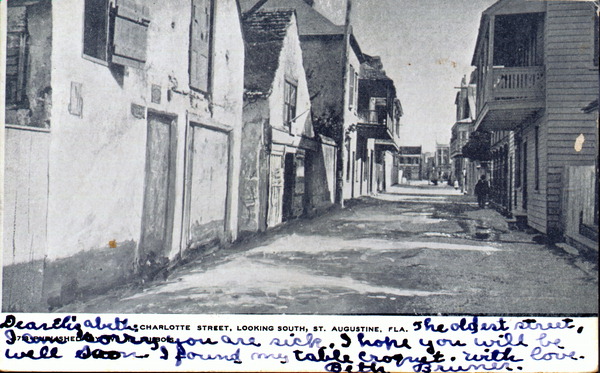 Dear Elizabeth. CHARLOTTE STREET, LOOKING SOUTH, ST. AUGUSTINE, FLA. The oldest street,
I am sorry you are sick. I hope you will be
well soon. I found my table croquet. With love.
Beth Bruner.